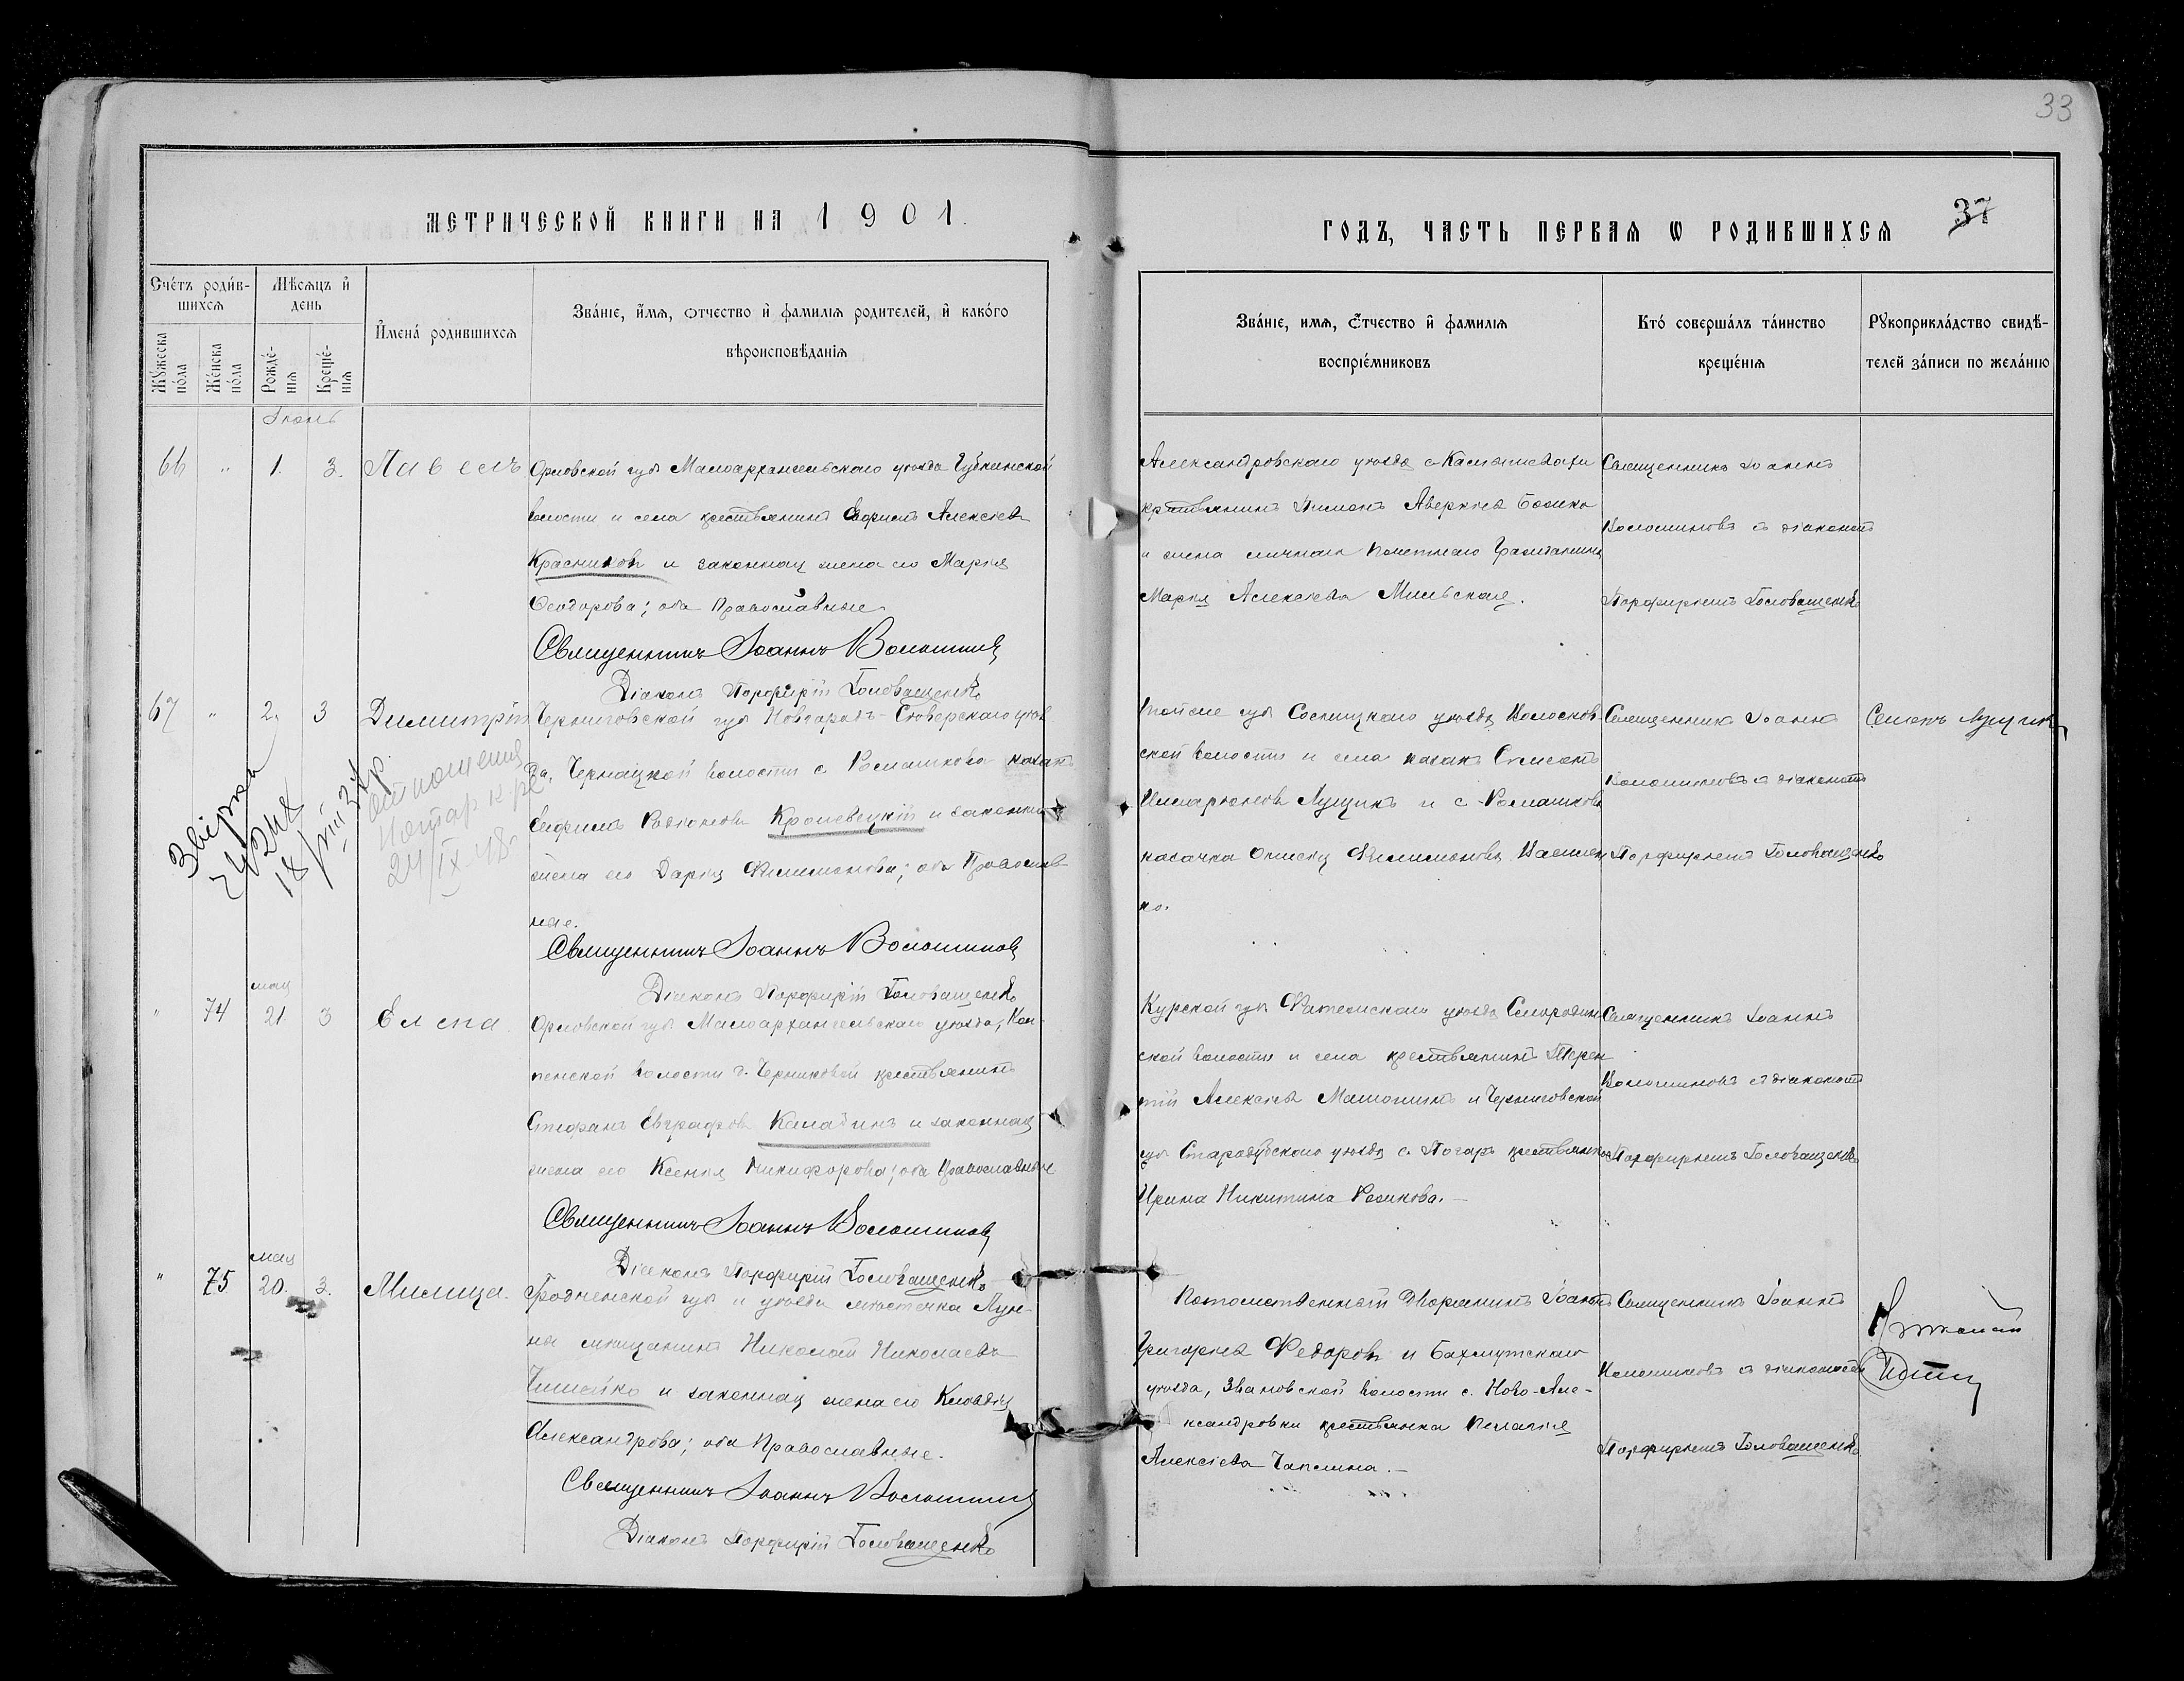 33
МЕТРИЧЕСКОЙ КНИГИ НА 1901.
ГОДЪ, ЧАСТЬ ПЕРВАЯ Ѡ РОДИВШИХСЯ
37
Сче́тъ роди́в-
шихся
Мѣсяцъ и҆
день
Мꙋжеска по́ла
Же́нска по́ла
Рожде́-нїя
Креще́-нїя
И҆мена́ родившихся
Зва́нїе, и҆́мя, отчество и҆ фамилїя родителей, и҆ како́го
вѣроисповѣ́данїя
Зва́нїе, имя, о҆́тчество и҆ фамилїя
воспрїе́мниковъ
Кто́ соверша́лъ та́инство
креще́нїя
Рꙋкоприкла́дство свидѣ́-
телей за́писи по жела́нїю
Іюнь
66 " 1. 3. Павелъ
Орловской губ Малоархангельскаго уѣзда Губкинской
волости и села крестьянинъ Борисъ Алексѣевъ
Красниковъ и законная жена его Марія
Ѳеодорова; оба Православные
Священникъ Іоаннъ Волошинъ
Діаконъ Порфирій Головащенко
Александровскаго уѣзда с. Камышевахи
крестьянинъ Аверкіевъ
и жена личнаго Почетнаго Гражданина
Марія Алексѣева Мильская.
Священникъ Іоаннъ
Волошиновъ съ діакономъ
Порфиріемъ Головащенко
67 " 2. 3 Димитрій
Черниговской губ Новгородъ-Сѣверскаго уѣз
да, Чернацкой волости с. Ромашково козакъ
Ефимъ Родіоновъ Кролевецкій и законная
жена его Дарія Филимонова; оба Православ
ные.
Священникъ Іоаннъ Волошиновъ
Діаконъ Порфирій Головащенко
Звірка
24/IX 48
той же губ Сосницкаго уѣзда Волосков-
ской волости и села козакъ Симеонъ
Иларіоновъ Лущикъ и с. Ромашкова
козачка Филимонова Василен
ко.
Священникъ Іоаннъ
Волошиновъ съ діакономъ
Порфиріемъ Головащенко
Семенъ Лущикъ
мая
" 74 21 3 Елена.
Орловской губ Малоархангельскаго уѣзда, Кол-
пенской волости д. Черниковой крестьянинъ
Стефанъ Евграфовъ Келадинъ и законная
жена его Ксенія Никифорова; оба Православные
Священникъ Іоаннъ Волошиновъ
Діаконъ Порфирій Головащенко
Курской губ Фатежскаго уѣзда Смородин
ской волости и села крестьянинъ Терен
тій Алексѣевъ Машошинъ и Черниговской
губ Стародубскаго уѣзда с. Погаръ крестьянка
Ирина Никитина
Священникъ Іоаннъ
Волошиновъ съ діакономъ
Порфиріемъ Головащенко
мая
" 75 20. 3. Милица.
Гродненской губ и уѣзда мѣстечка Лун-
ны мѣщанинъ Николай Николаевъ
и законная жена его Клавдія
Александрова; оба Православные.
Священникъ Іоаннъ Волошинъ
Діаконъ Порфирій Головащенко
Потомственный Дворянинъ Іоаннъ
Григорьевъ Федоровъ и Бахмутскаго
уѣзда, Звановской волости с. Ново-Але-
ксандровки крестьянка Пелагія
Алексѣева Чаплина.
Священникъ Іоаннъ
Волошиновъ съ діакономъ
Порфиріемъ Головащенко